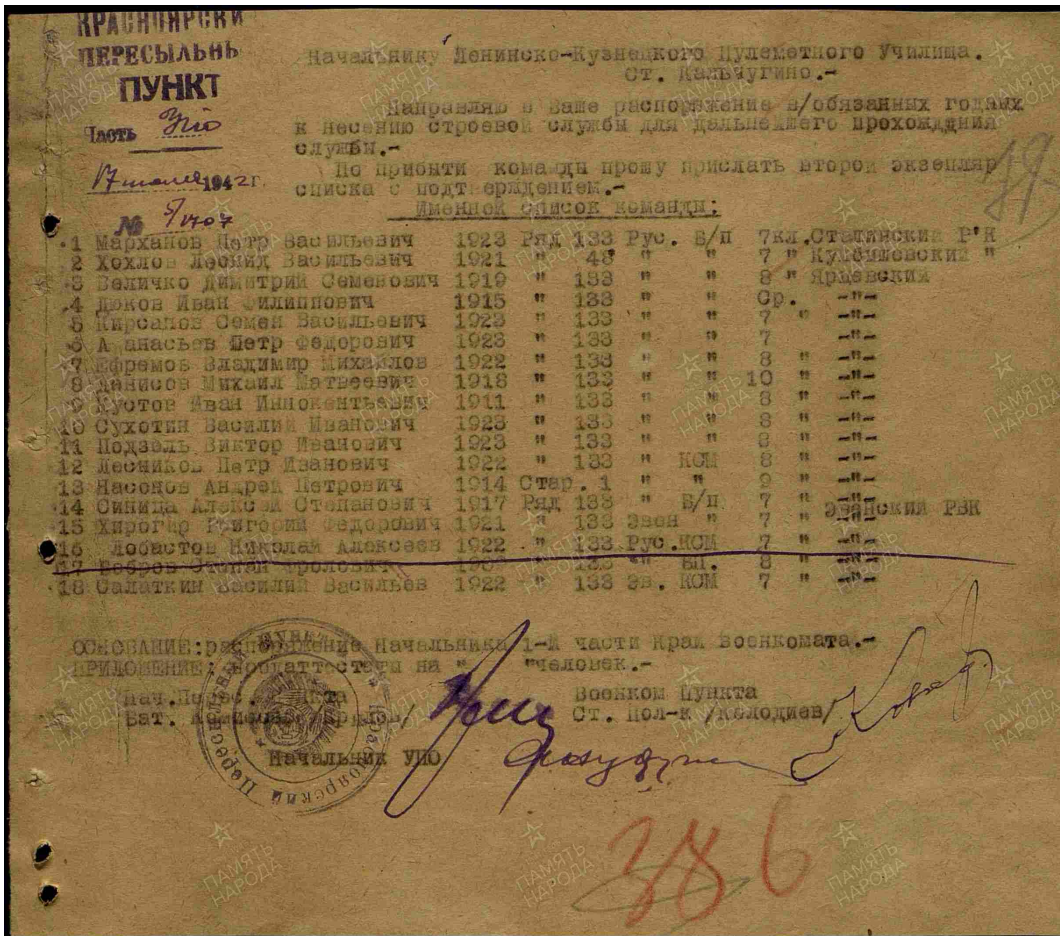 КРАСНОЯРСКИ
ПЕРЕСЫЛЬНЬ
ПУНКТ
Часть УПО
17 июля 1942 г.
№
Начальнику Ленинско-Кузнецкого Пулеметного Училища.
Ст. Кальчугино.-
Направляю в Ваше распоряжение в/обязанных годных
к несению строевой службы для дальнейшего прохождения
службы.-
По прибыти команды прошу прислать второй экземпляр
списка с подтверждением.-
Именной список команды:
1 Марханов Петр Васильевич 1923 Ряд 133 Рус. Б/п 7кл. Сталинский Р'К
2 Хохлов Леонид Васильевич 1921 " 48 " " 7 " Куйбышевский "
3 Величко Димитрий Семенович 1919 " 133 " " 8 " Ярцевский
4 Дюков Иван Филиппович 1915 " 133 " " Ср. -"-
5 Кирсанов Семен Васильевич 1923 " 133 " " 7 " -"-
6 А анасьев Петр Федорович 1923 " 133 " " 7 -"-
7 Ефремов Владимир Михайлов 1922 " 133 " " 8 " -"-
8 Данисов Михаил Матвеевич 1918 " 133 " " 10 " -"-
9 Кустов Иван Иннокентьевич 1911 " 133 " " 8 " -"-
10 Сухотин Василий Иванович 1923 " 133 " " 8 " -"-
11 Подзель Виктор Иванович 1923 " 133 " " 8 " -"-
12 Лесников Петр Иванович 1922 " 133 " КСМ 8 " -"-
13 Насонов Андрей Петрович 1914 Стар. 1 " " 9 " -"-
14 Синица Алексей Степанович 1917 Ряд 133 " Б/П 7 " Эванский РВК
15 Хирогир Григорий Федорович 1921 " 133 Эвен " 7 " -"-
16 Лобастов Николай Алексеев 1922 " 133 Рус. КСМ 7 " -"-
17 Бобров Степан Фролович " 133 " ВП. 8 " -"-
18 Салаткин Василий Васильев 1922 " 133 Эв. КОМ 7 " -"-
ОСНОВАНИЕ: распоряжение Начальника 1-й части Край военкомата.-
ПРИЛОЖЕНИЕ: Продаттестаты на " "человек.-
Нач. Перес. та
Бат. Комиссар
Военком Пункта
Ст. Пол-к /Колодиев/
Начальник УПО
Красноярский Пересыльный пункт
386
19
ПАМЯТЬ НАРОДА